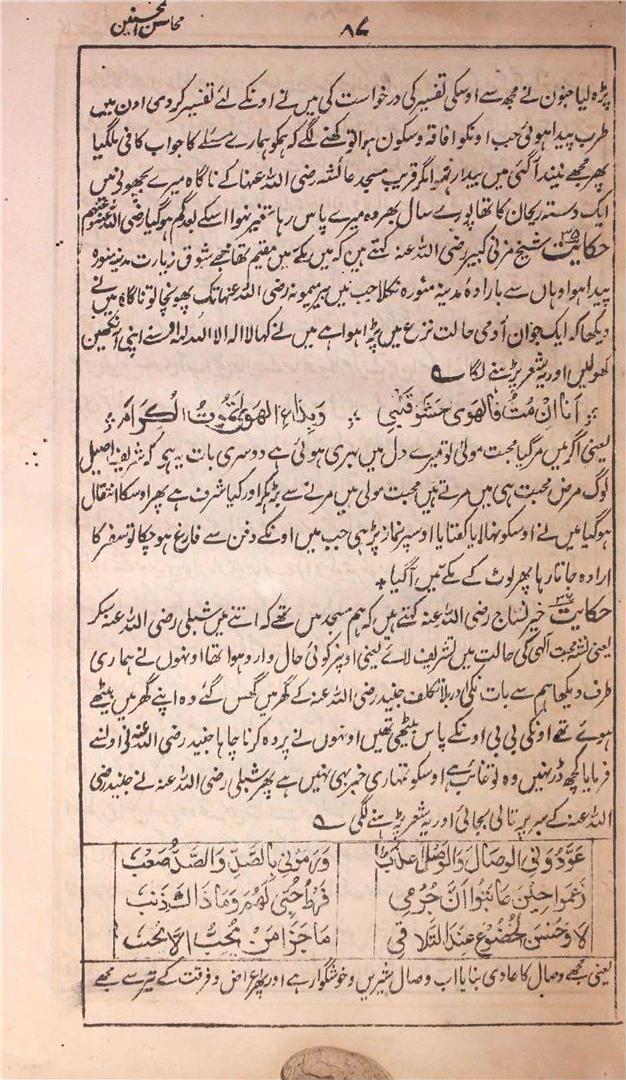 محاسن المحسنین
۸۷
پڑہ لیا جنون نے مجھ سے اوسکی تفسیر کی درخواست کی میں نے اونکے لئے تفسیر کر دی اون میں
طرب پیدا ہوئی جب اونکو افاقہ و سکون ہوا تو کہنے لگے کہ ہمکو ہمارے مسئلے کا جواب کافی ملگیا
پھر مجھے نیند آگئی میں بیدار نہوا مگر قریب مسجد عائشہ رضی اللہ عنہا کے ناگاہ میرے بچھونی میں
ایک دستہ ریحان کا تھا پورے سال بھر وہ میرے پاس رہا متغیر نہوا اسکے بعد گم ہوگیا رضی اللہ عنہم
حکایت ۳۵ شیخ مزنی کبیر رضی اللہ عنہ کہتے ہین کہ میں مکے میں مقیم تھا مجھے شوق زیارت مدینہ منورہ
پیدا ہوا وہاں سے بارادہ مدینہ منورہ نکلا جب میں بیر میمونہ رضی اللہ عنہا تک پھونچا تو ناگاہ میں نے
دیکھا کہ ایک جوان آدمی حالت نزع میں پڑا ہوا ہے میں نے کہا لا الہ الا اللہ اوسنے اپنی آنکھین
کھولیں اور یہ شعر پڑہنے لگا
انا ان مت فالهوی حشو قلبی وبداء الهوی تموت الکرام
یعنی اگر میں مرگیا محبت مولی تو میرے دل میں بہری ہوئی ہے دوسری بات یہ ہے کہ شریف اصیل
لوگ مرض محبت ہی میں مرتے ہین محبت مولی میں مرنے سے بڑہکر اور کیا شرف ہے پھر اوسکا انتقال
ہوگیا میں نے اوسکو نہلایا کفنایا اوسپر نماز پڑہی جب میں اونکے دفن سے فارغ ہوچکا تو سفر کا
ارادہ جاتا رہا پھر لوٹ کے مکے میں آگیا
حکایت ۳۶ خیر نساج رضی اللہ عنہ کہتے ہیں کہ ہم مسجد میں تھے کہ اتنے میں شبلی رضی اللہ عنہ سکر
یعنی نشہ محبت الہی کی حالت میں تشریف لائے یعنی اونپر کوئی حال وارد ہوا تھا اونہوں نے ہماری
طرف دیکھا ہم سے بات نکی اور بلا تکلف جنید رضی اللہ عنہ کے گھر میں گھس گئے وہ اپنے گھر میں بیٹھے
ہوئے تھے اونکی بی بی اونکے پاس بیٹھی تھیں اونہوں نے پردہ کرنا چاہا جنید رضی اللہ عنہ نے اونسے
فرمایا کچھ ڈر نہیں وہ تو غائب ہے اوسکو تمہاری خبر بہی نہیں ہے پھر شبلی رضی اللہ عنہ نے جنید رضی
اللہ عنہ کے سر پر تالی بجائی اور یہ شعر پڑہنے لگی
عودونی الوصال والوصل عذب ورمونی بالصد والصد صعب
زعموا حین عاتبوا ان جرمی فرط حبی لهم وما ذاک ذنب
لا وحسن الخضوع عند التلاقی ما جزا من یحب الا یحب
یعنی مجھے وصال کا عادی بنایا اب وصال شیریں و خوشگوار ہے اور پھر اعراض و فرقت کے تیر سے مجھے